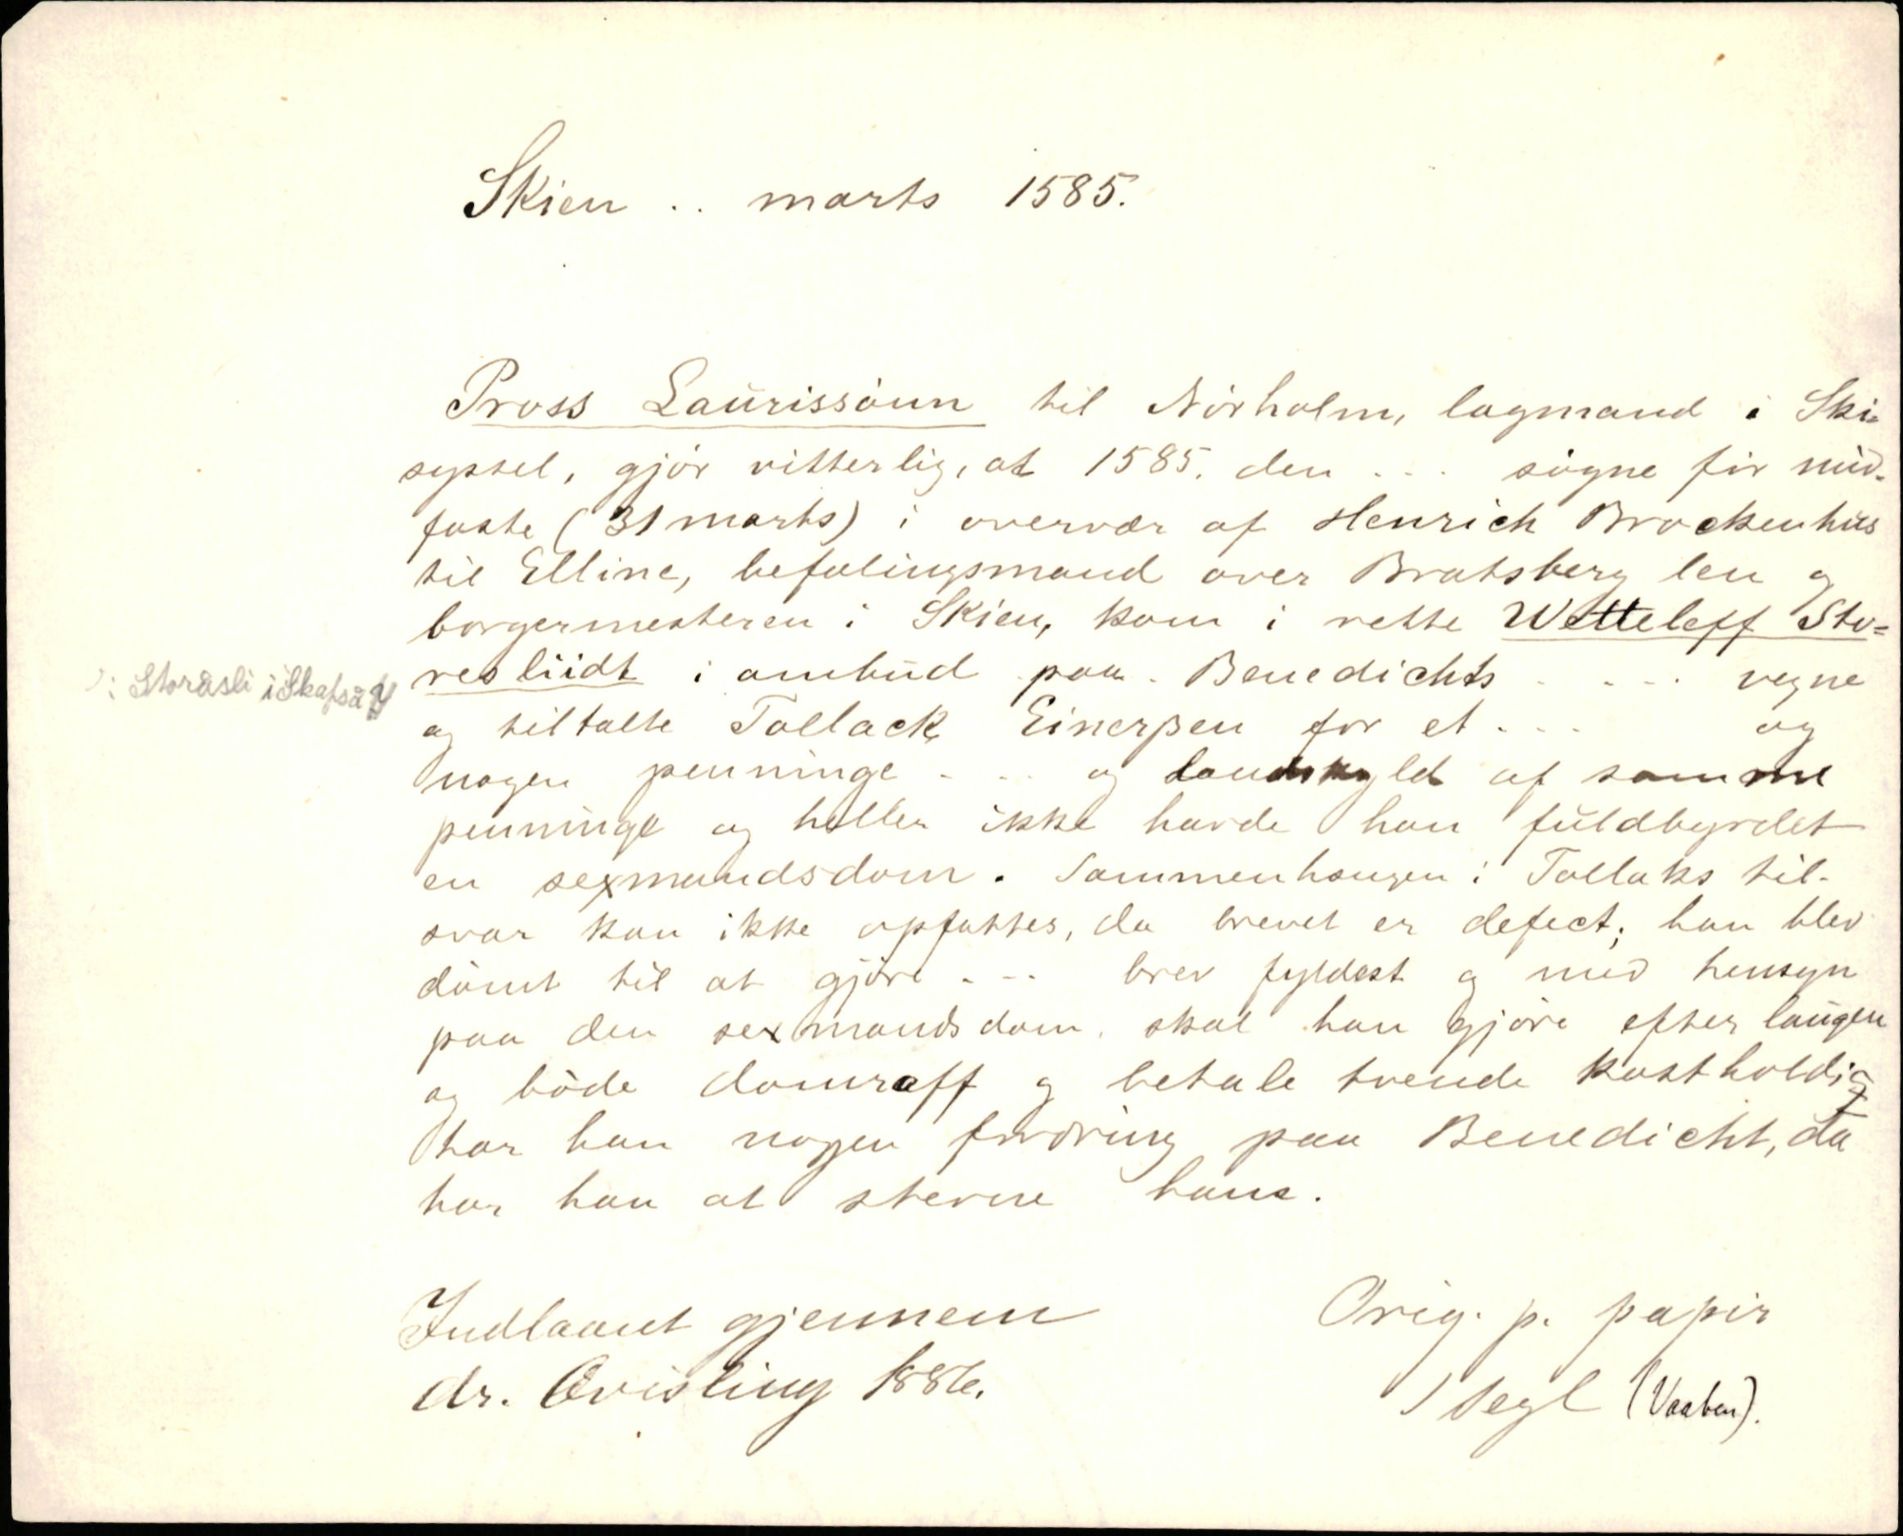 Skien .. marts 1585.
Pross Laurissönn til Nörholm, lagmand i Ski-
syssel, gjör vitterlig, at 1585. den ... sögne för mid-
faste (31 marts) i overvær af Henrich Brockenhus
til Elline, befalingsmand over Bratsberg len og
borgermesteren i Skien, kom i rette Wetteleff Sto-
resliidt i ombud paa Benedichts .... vegne
ɔ: Storåsli i Skafså
og tiltalte Tollack Einerßen for et ... og
nogen penninge ... og landskyld af samme
penninge og heller ikke havde han fuldbyrdet
en sexmandsdom. Sammenhængen i Tollaks til-
svar kan ikke opfattes, da brevet er defect; han blev
dömt til at gjöre ... brev fyldest og med hensyn
paa den sexmandsdom skal han gjöre efter laugen
og böde domraff og betale tvende kostholdig
har han nogen fordring paa Benedicht, da
har han at stevne hans.
Indlaant gjennem
dr. Qvisling 1886.
Orig. p. papir
1 Segl (Vaaben).